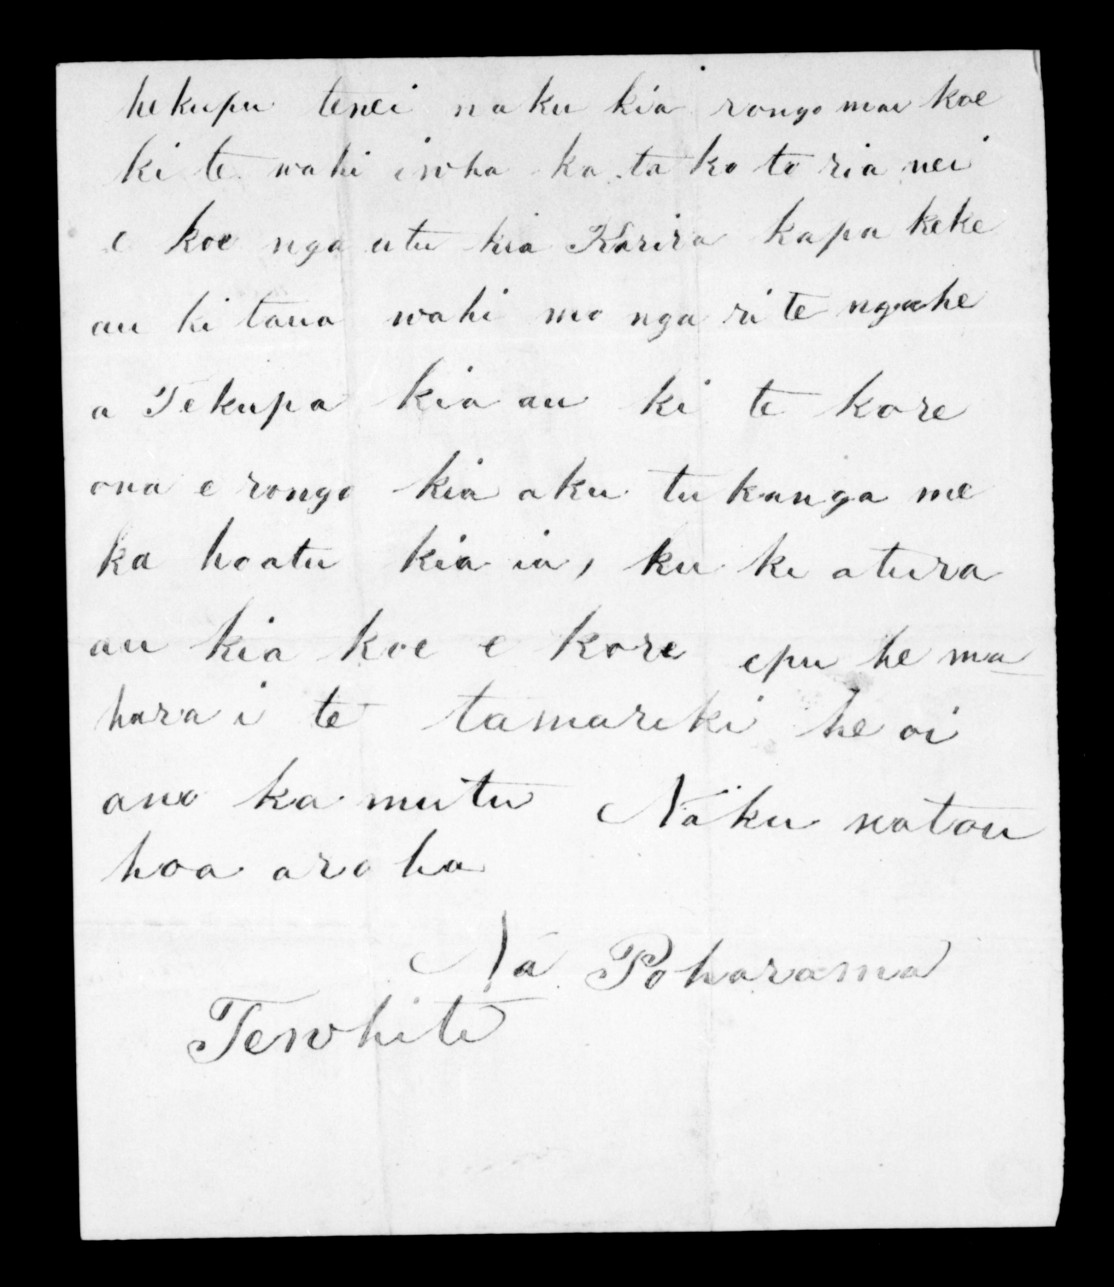 he kupu tenei naku kia rongo mai koe
ki te wahi i wha ka ta ko to ria nei
e koe nga utu kia Karira ka pa keke
au ki taua wahi mo nga ri te ngahe
a Te kupa kia au ki te kore
ona e rongo kia aku tukanga me
ka hoatu kia ia, ku ki atura
au kia koe e kore epu he ma_
hara i te tamariki he oi
ano ka mutu Naku na tou
hoa aroha
Na Poharama
Te whiti